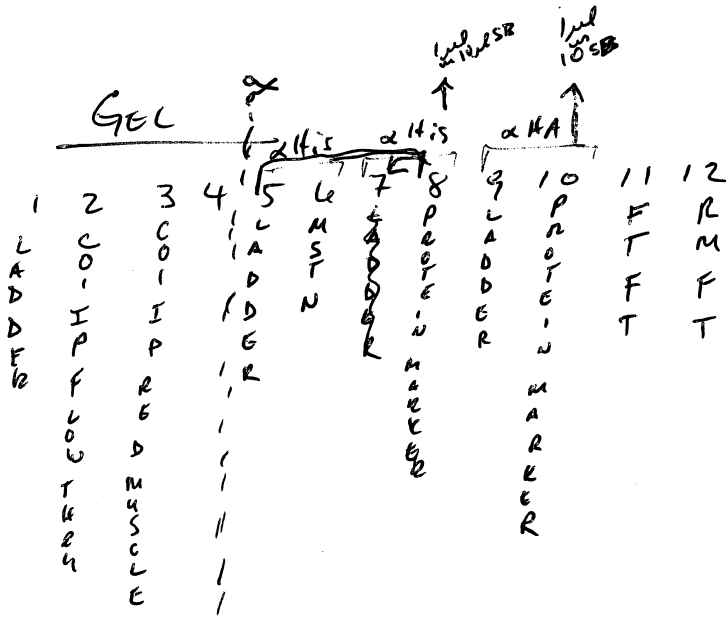 1µl
in 10µl SB
1µl
in
10 SB
GEL
αHis
αHis
αHA
1 2 3 4 5 6 7 8 9 10 11 12
LADDER
CO-IP FLOW THRU
CO-IP RED MUSCLE
LADDER
MSTN
LADDER
PROTEIN MARKER
LADDER
PROTEIN MARKER
FTFT
RMFT